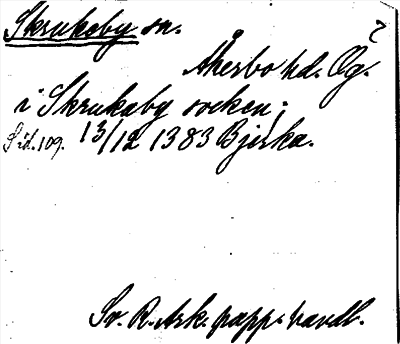 Skrukeby sn. ?
Åkerbo hd. Ög.
i Skrukaby socken;
Sid. 109. 13/12 1383 Bjerka.
Sv. R. Ark. papp. handl.